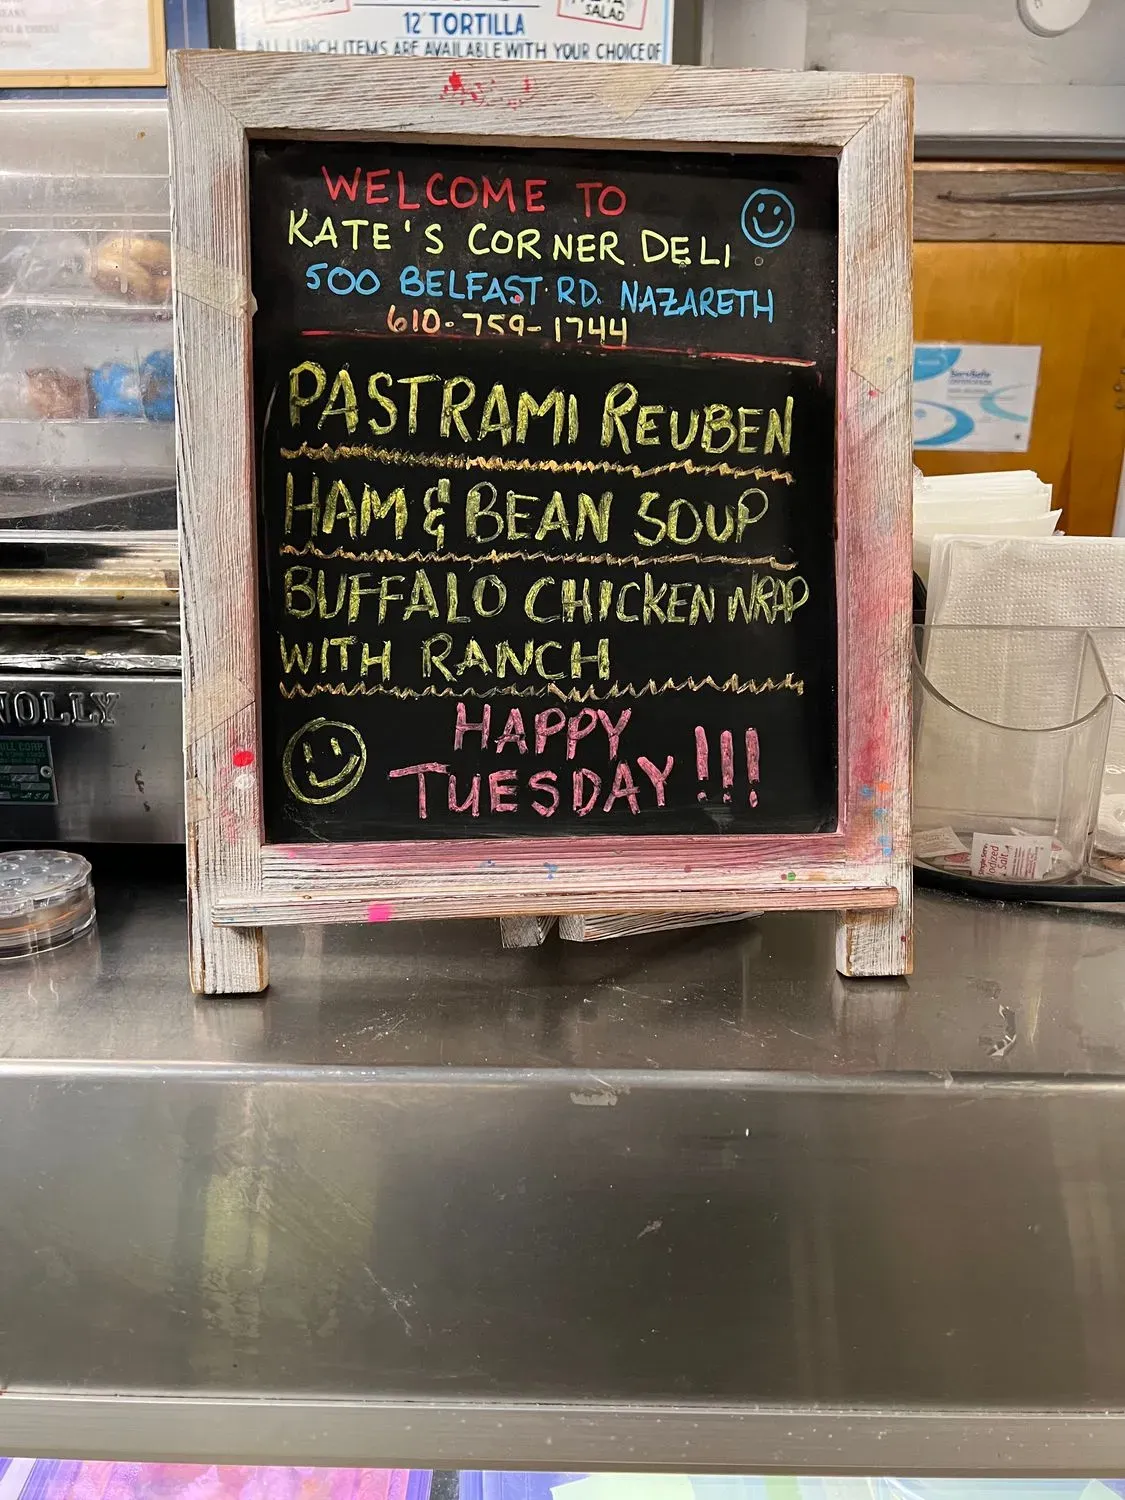 SALAD
12" TORTILLA
ALL LUNCH ITEMS ARE AVAILABLE WITH YOUR CHOICE OF
WELCOME TO
KATE'S CORNER DELI
500 BELFAST RD. NAZARETH
610-759-1744
PASTRAMI REUBEN
HAM & BEAN SOUP
BUFFALO CHICKEN WRAP
WITH RANCH
HAPPY
TUESDAY !!!
ServSafe
NOLLY
Iodized
Salt